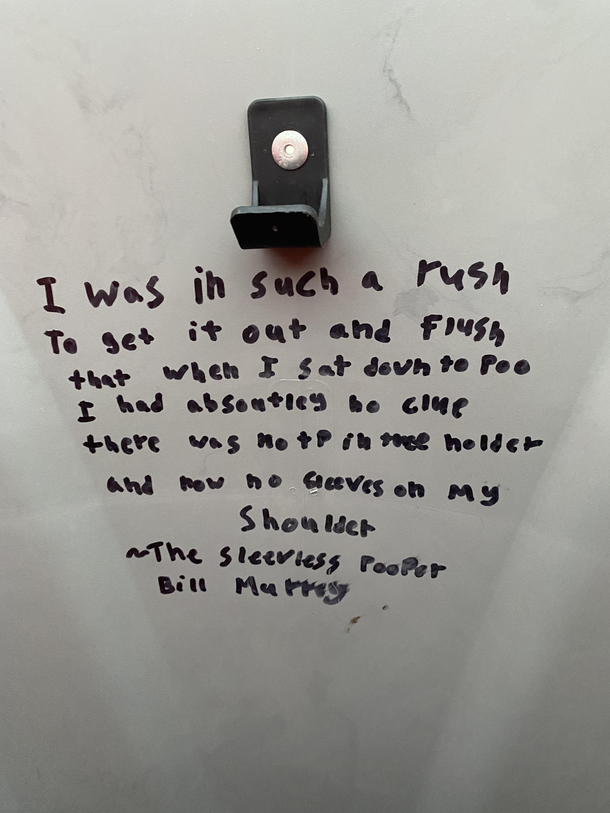 I was in such a rush
To get it out and Flush
that when I sat down to Poo
I had absoutley no clue
there was no tP in holder
and now no sleeves on my
Shoulder
~The sleevless PooPer
Bill Murrey